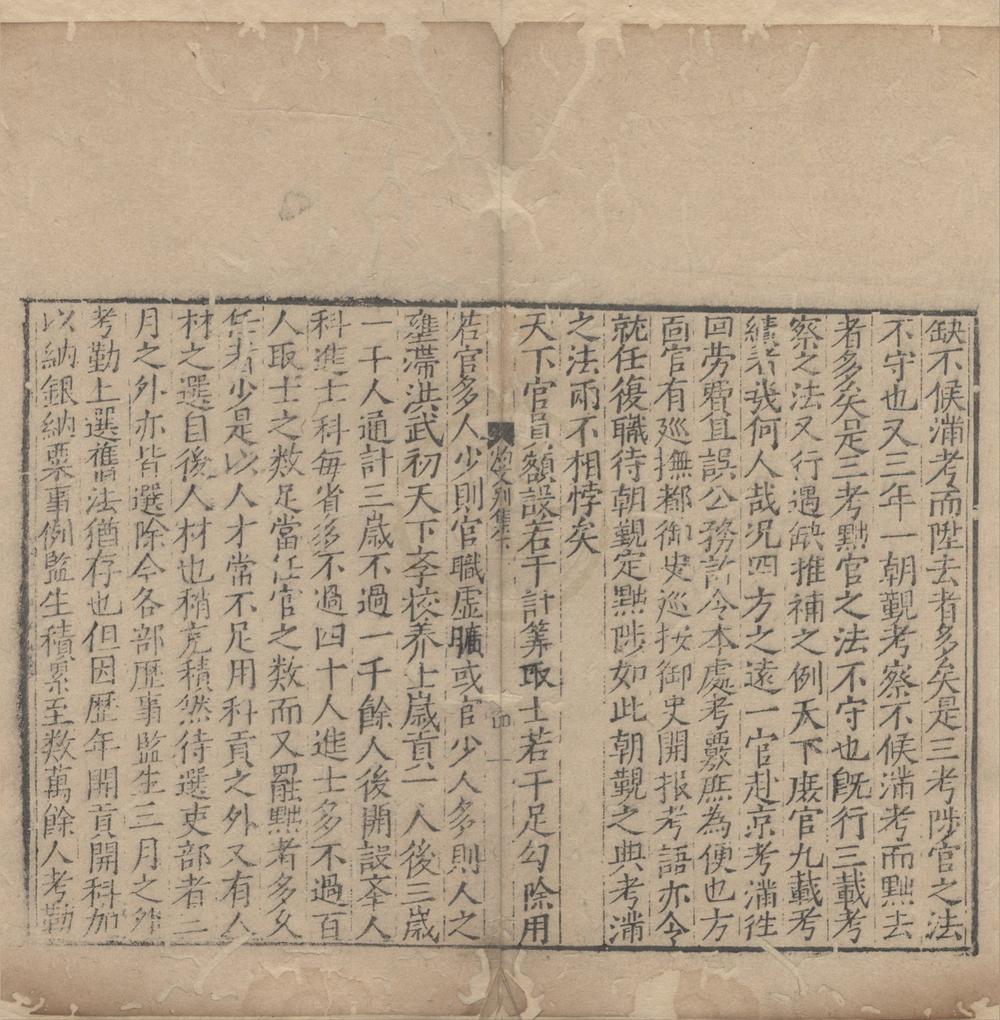 缺不候滿考而陞去者多矣是三考陟官之法
不守也又三年一朝覲考察不候滿考而黜去
者多矣是三考黜官之法不守也旣行三載考
察之法又行遇缺推補之例天下庶官九載考
績者幾何人哉况四方之遠一官赴京考滿徃
回勞費且誤公務許令本處考覈庶為便也方
面官有廵撫都御史廵按御史開報考語亦令
就任復職待朝覲定黜陟如此朝覲之典考滿
之法兩不相悖矣
天下官員額設若干計筭取士若干足勾除用
若官多人少則官職虛曠或官少人多則人之
壅滯洪武初天下李校养士歲貢一人後三歲
一千人通計三歲不過一千餘人後開設李人
科進士科每省多不過四十人進士多不過百
人取士之数足當任官之数而又罷黜者多久
任者少是以人才常不足用科貢之外又有人
材之選自後人材也稍充積然待選吏部者二
月之外亦皆選除今各部歷事監生三月之外
考勤上選舊法猶存也但因歷年開貢開科加
以納銀納粟事例監生積累至数萬餘人考勤